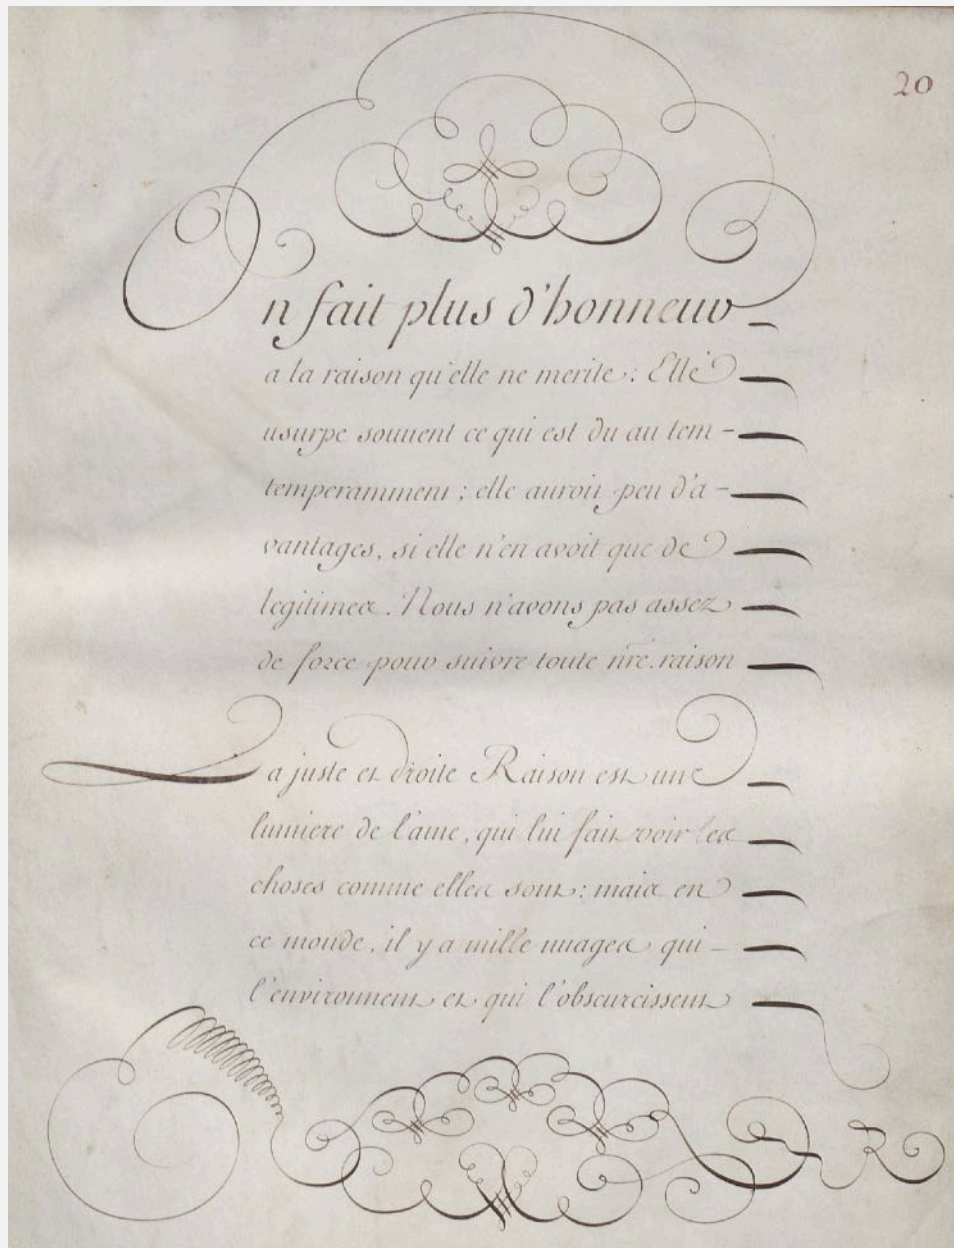 20
On fait plus d'honneur
a la raison qu'elle ne merite : Elle
usurpe souuent ce qui est du au tem-
temperamment ; elle auroit peu d'a-
vantages, si elle n'en avoit que de
legitimes. Nous n'avons pas assez
de force pour suivre toute nre. raison
La juste et droite Raison est une
lumiere de l'ame, qui lui fait voir les
choses comme elles sont : mais en
ce monde, il y a mille nuages qui
l'environnent et qui l'obscurcissent